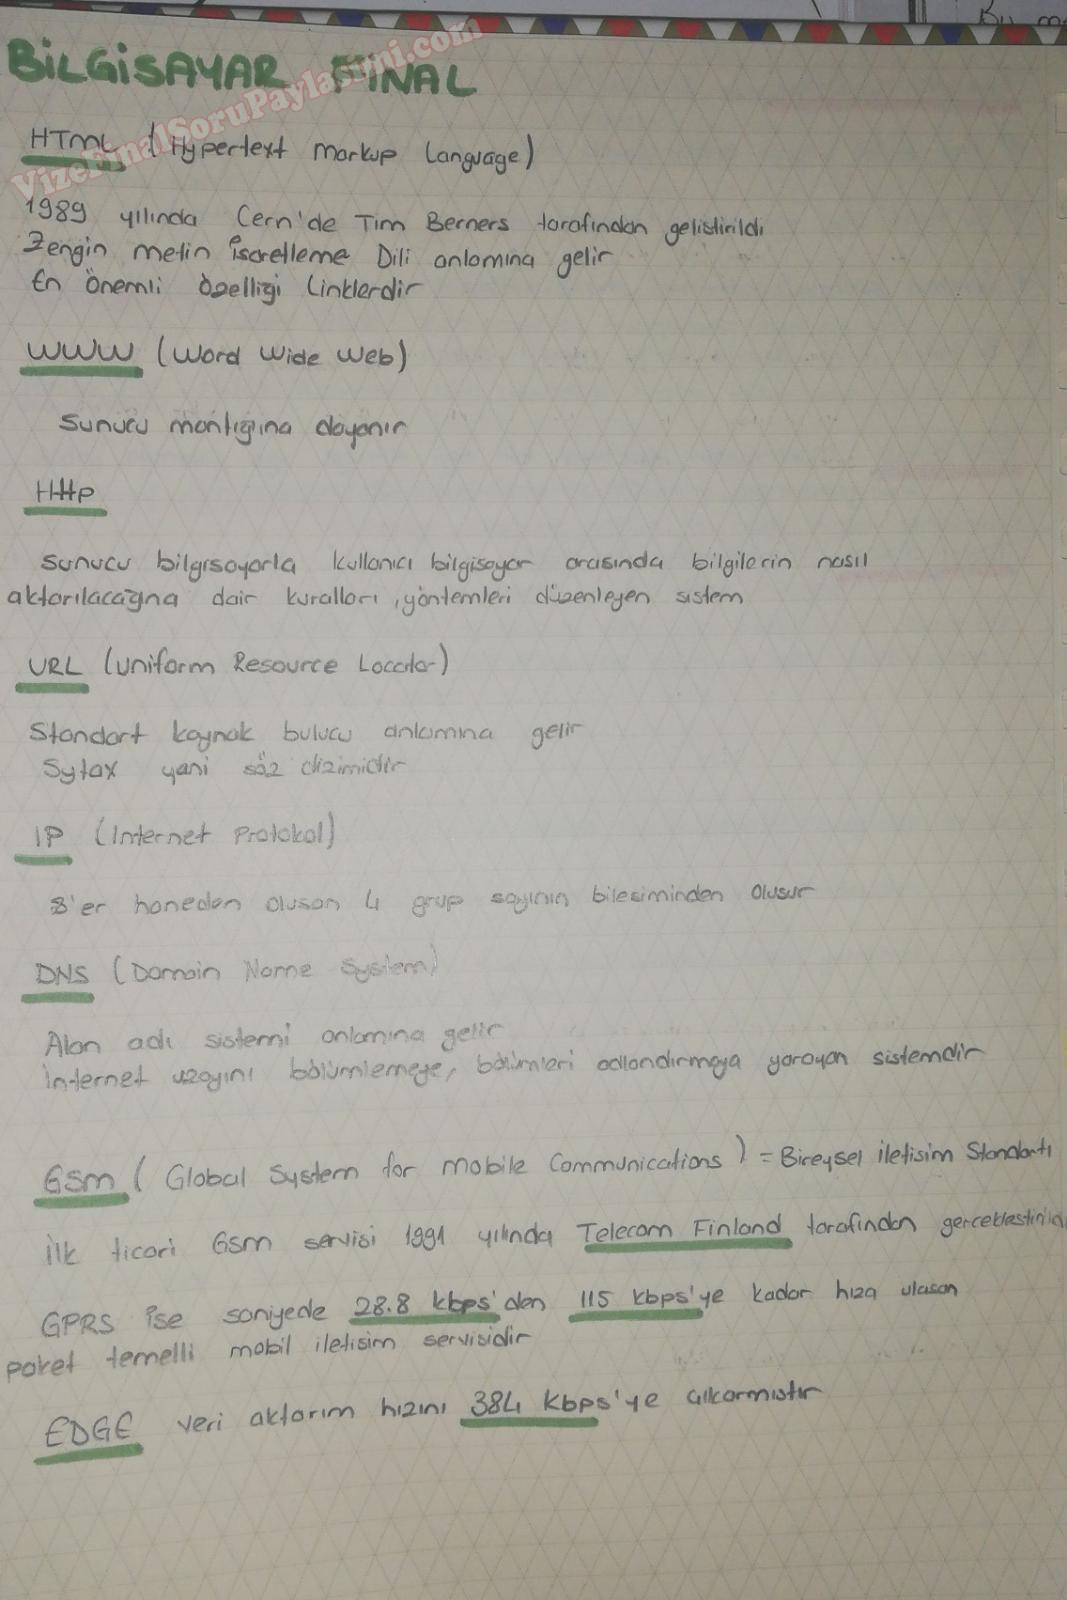 Bu
BİLGİSAYAR FİNAL
VizeFinalSoruPaylasimi.com
HTML (Hypertext Markup Language)
1989 yılında Cern'de Tim Berners tarafından gelistirildi
Zengin metin İsaretleme Dili anlamına gelir
En Önemli özelliği Linklerdir
WWW (Word Wide Web)
Sunucu mantığına dayanır
Http
Sunucu bilgisayarla kullanıcı bilgisayar arasında bilgilerin nasıl
aktarılacağına dair kuralları, yöntemleri düzenleyen sistem
URL (Uniform Resource Locator)
Standart kaynak bulucu anlamına gelir
Sytax yani söz dizimidir
IP (Internet Protokol)
8'er haneden olusan 4 grup sayının bilesiminden olusur
DNS (Domain Name System)
Alan adı sistemi anlamına gelir
İnternet uzayını bölümlemeye, bölümleri adlandırmaya yarayan sistemdir
Gsm (Global System for mobile Communications) = Bireysel iletisim Standartı
İlk ticari Gsm servisi 1991 yılında Telecom Finland tarafından gerceklestirildi
GPRS ise saniyede 28.8 kbps'den 115 kbps'ye kadar hıza ulasan
paket temelli mobil iletisim servisidir
EDGE veri aktarım hızını 384 kbps'ye cıkarmıstır